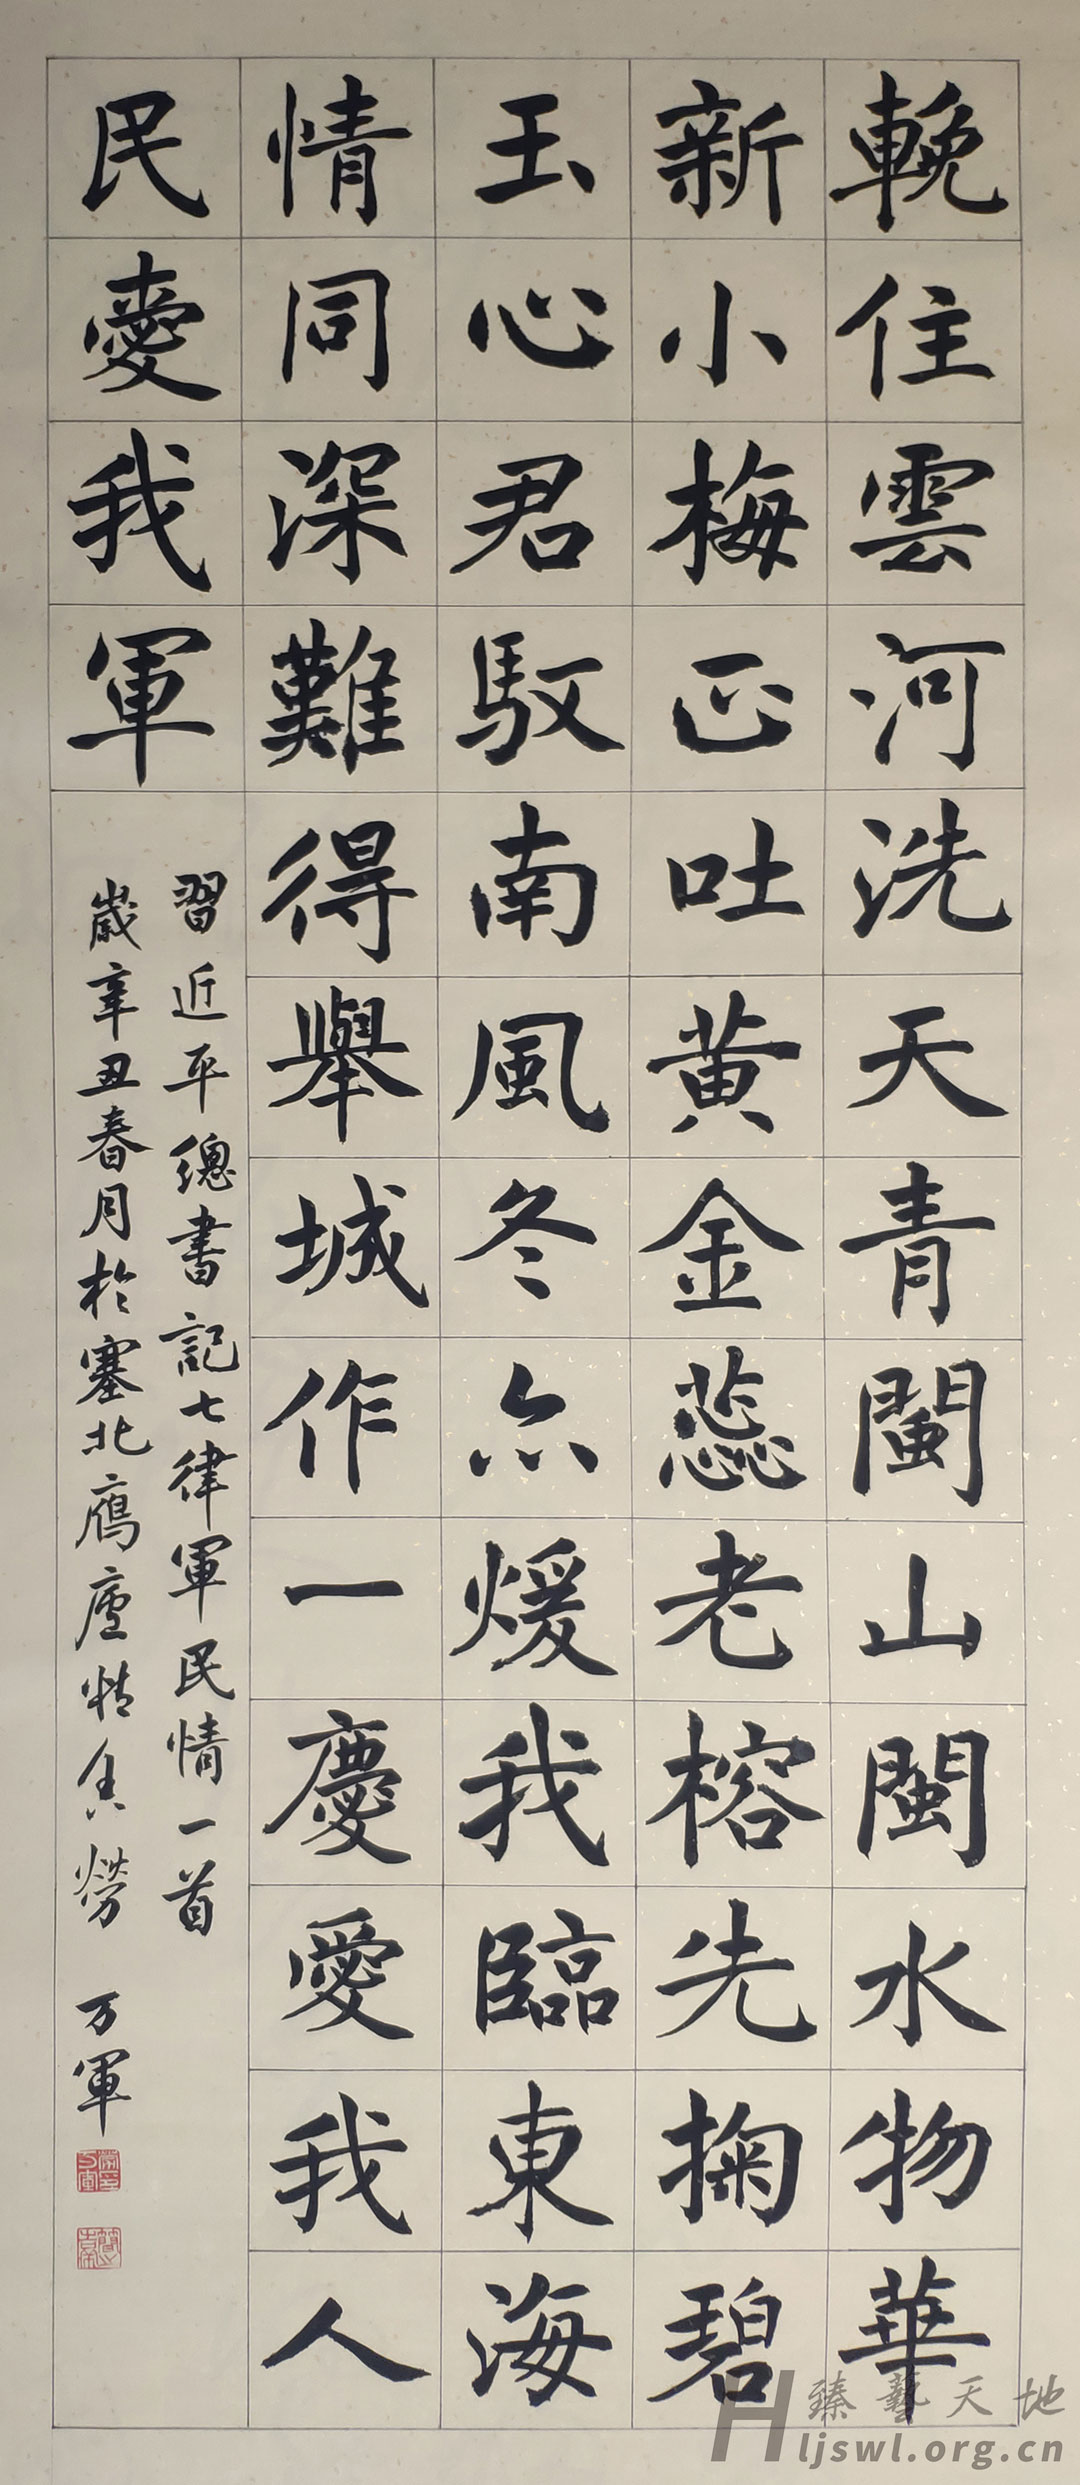 輓住雲河洗天青閩山閩水物華
新小梅正吐黄金蕊老榕先掬碧
玉心君馭南風冬亦煖我臨東海
情同深難得舉城作一慶愛我人
民愛我軍
習近平總書記七律軍民情一首
歲辛丑春月於塞北鴈廬勞万軍
臻藝天地
ljswl.org.cn